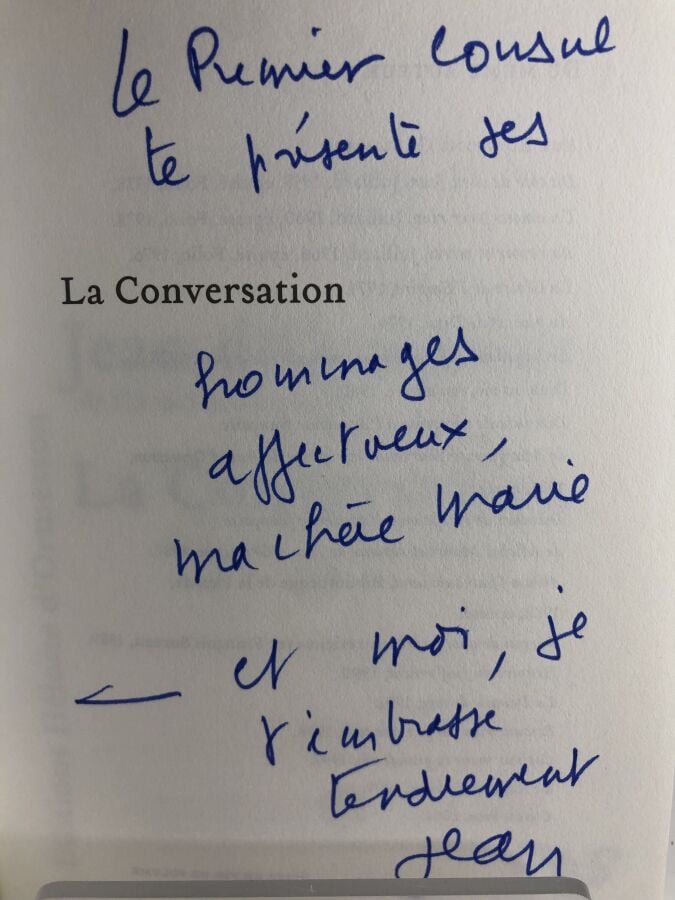 Le Premier Consul
te présente ses
La Conversation
hommages
affectueux,
ma chère Marie
et moi, je
t'embrasse
tendrement
Jean